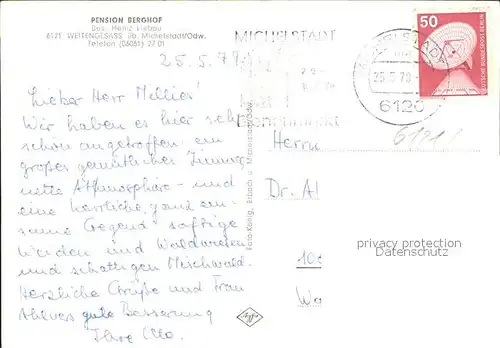 PENSION BERGHOF
Bes. Heinz Liebau
6121 WEITENGESÄSS üb. Michelstadt/Odw.
Telefon (06061) 27 01
25. 5. 79
Lieber Herr
Wir haben es hier sehr
schön angetroffen: ein
großes gemütliches Zimmer
nette Atmosphäre - und
eine herrliche, ganz ein-
same Gegend saftige
und Waldwiesen
und schattigen Mischwald.
Herzliche Grüße und Frau
Ahlers gute Besserung
Ihre
Foto-König, Erbach u. Michelstadt/Odw.
Agfa
MICHELSTADT
50
DEUTSCHE BUNDESPOST BERLIN
25.5.79
6120
Herrn
Dr. A
privacy protection
Datenschutz
10